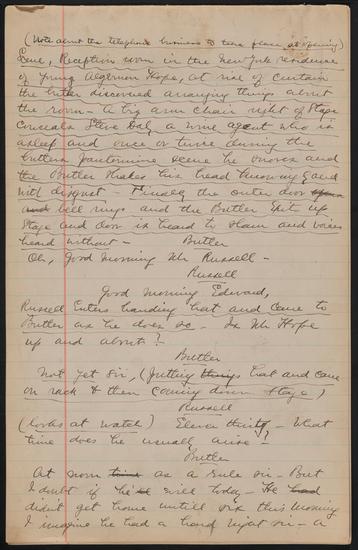 (Note about the telephone business to take place at opening)
Scene, Reception room in the New York residence
of Young Algernon Hope, at rise of curtain
the butler discovered arranging things about
the room - A big arm chair right of stage
Conceals Steve Daly a wine agent who is
asleep and once or twice during the
butlers pantomime scene he snores and
the Butler shakes his head knowingly and
with disgust - Finally the outer door
and bell rings and the Butler Exits up
stage and door is heard to slam and voices
heard without -
Butler
Ah, Good Morning Mr Russell -
Russell
Good Morning Edward,
Russell Enters handing hat and cane to
Butler as he does so - Is Mr Hope
up and about?
Butler
Not yet Sir, (putting things hat and cane
on rack & then coming down stage)
Russell
(looks at watch) Eleven thirty - What
time does he usually arise?
Butler
At noon time as a rule sir - But
I doubt if he'll will today - He had
didn't get home untill six this morning
I imagine he had a hard night sir - a